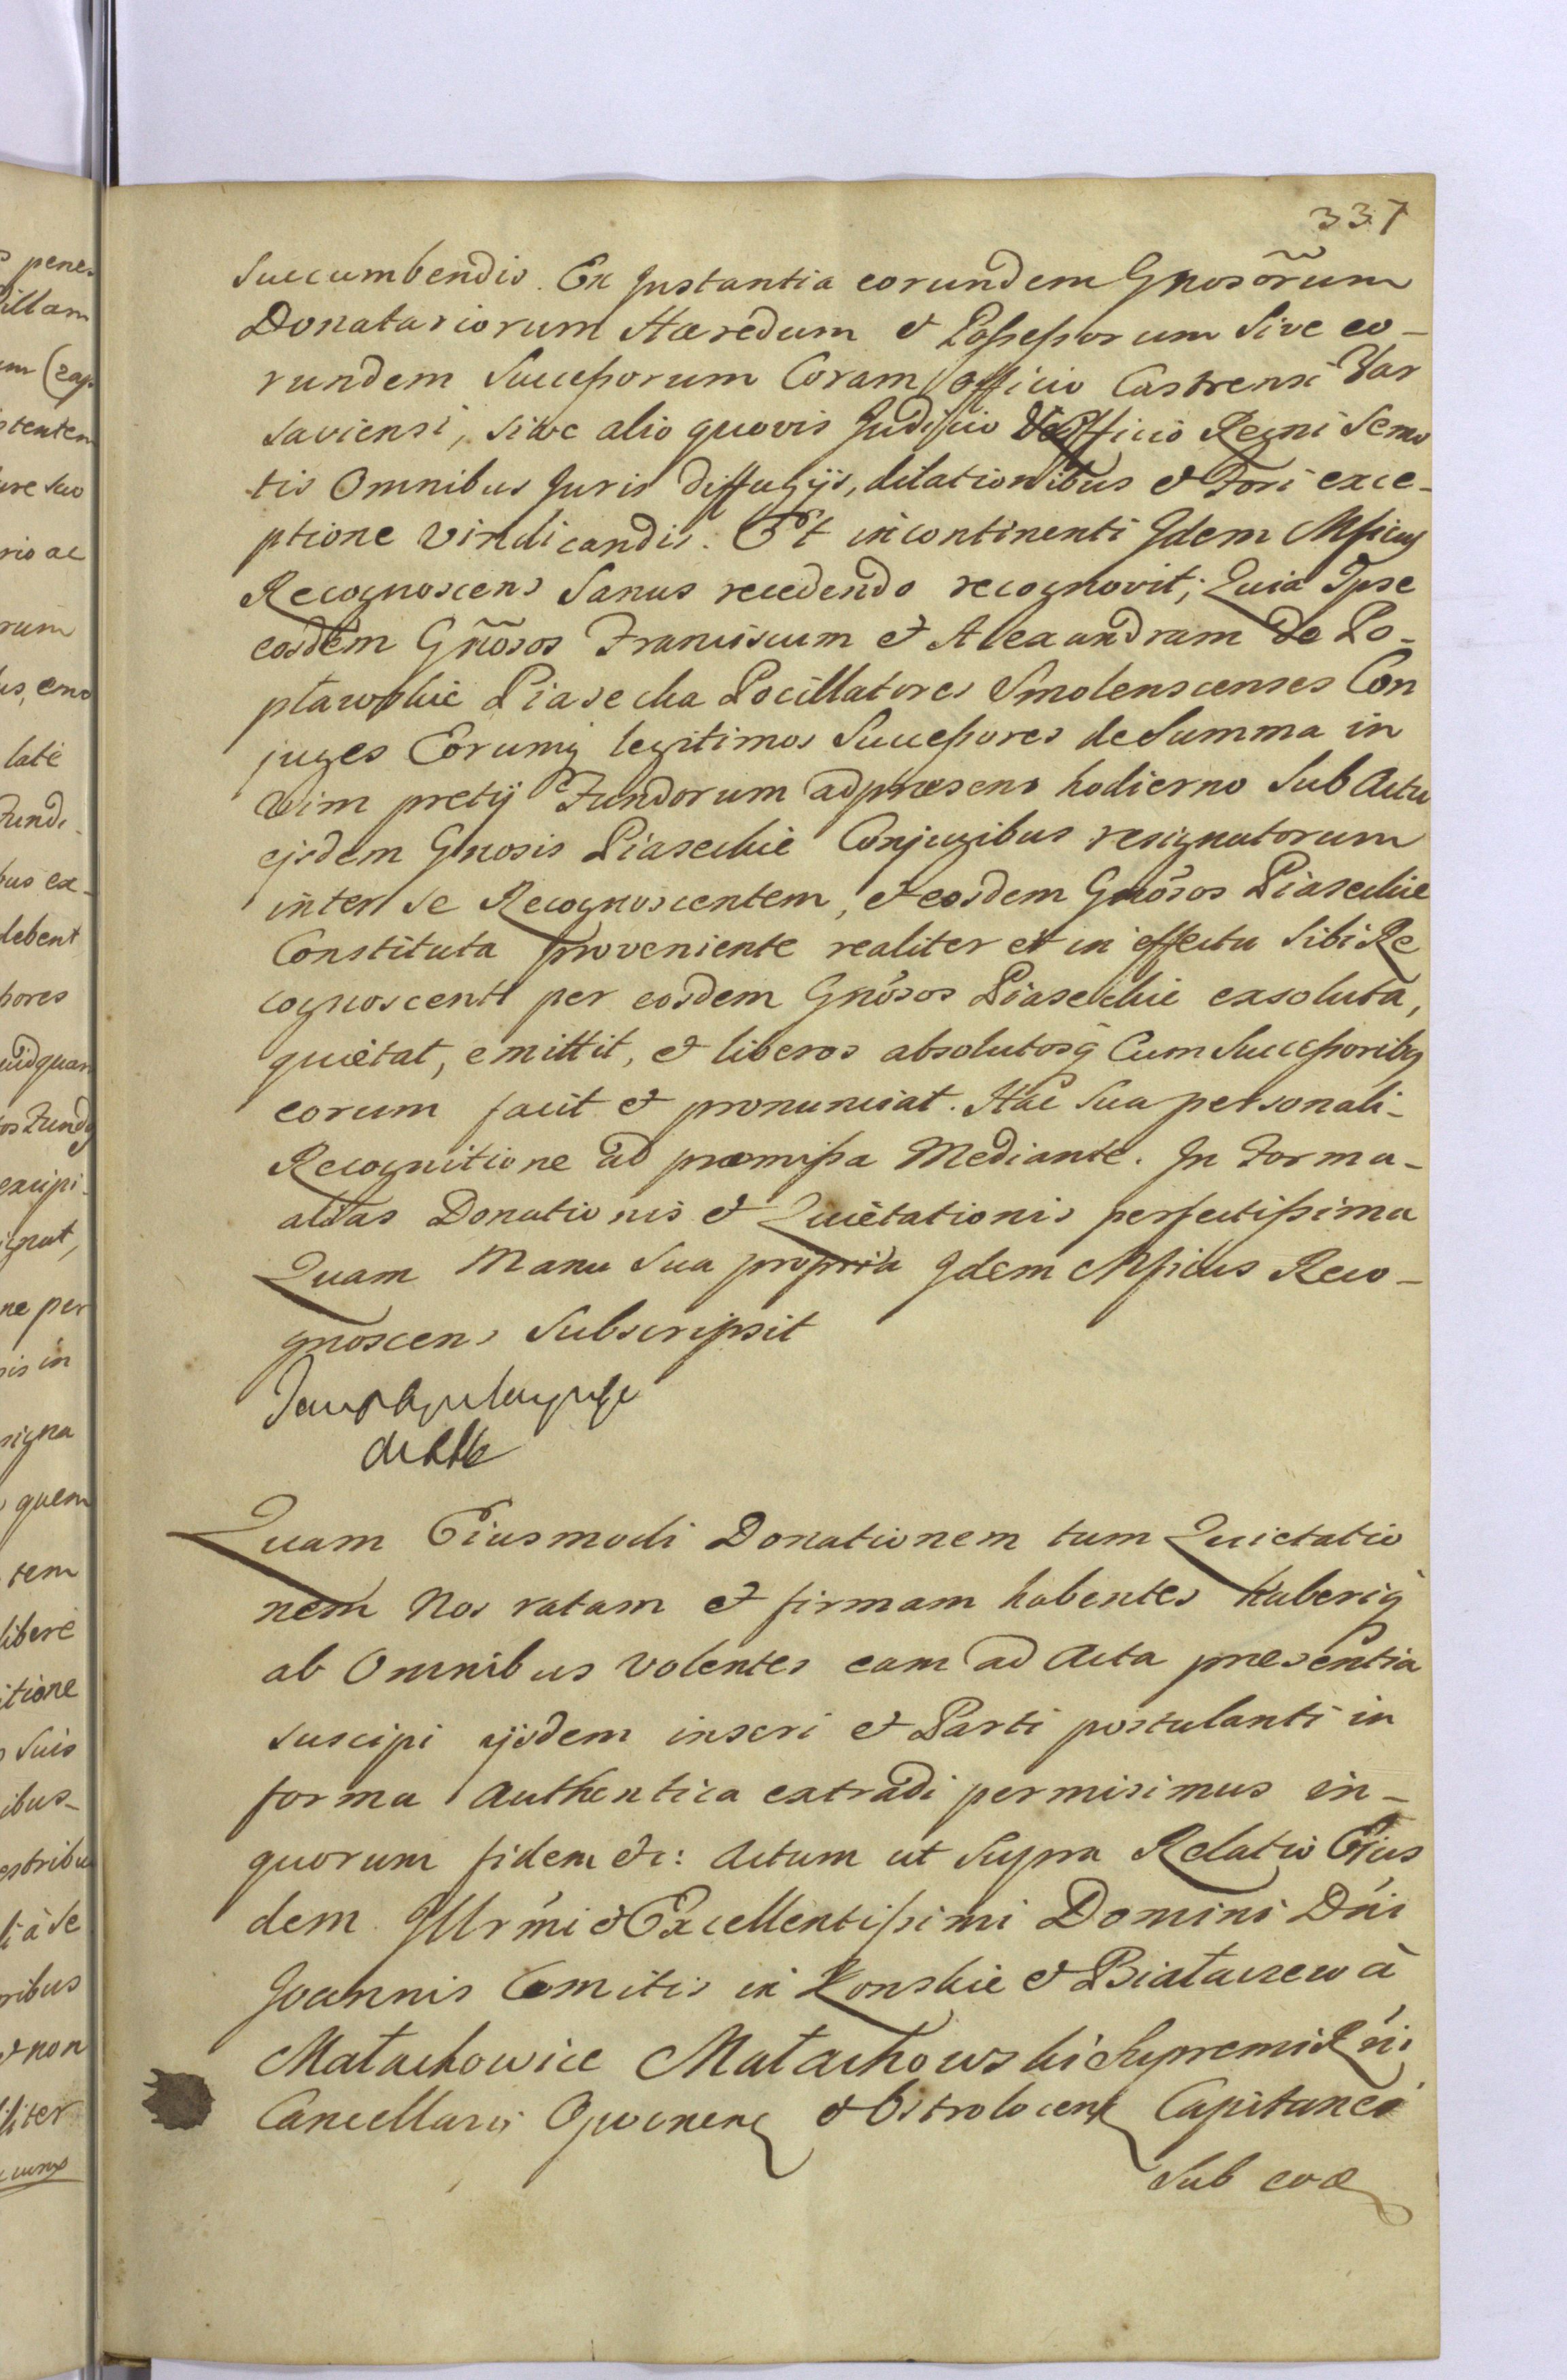 337
Succumbendis. Ex Instantia eorundem Gnosõrum
Donatariorum Hæredum et Poßeßorum Sive eo-
rundem Succeßorum Coram Officio Castrensi Var
saviensi, sive alio quovis Judicio Officio Regni Semo
tis Omnibus Juris diffugijs, dilationibus et Fori exce-
ptione vindicandis. Et incontinenti Idem Mficus
Recognoscens Sanus recedendo recognovit; Quia Ipse
eosdem Gñosos Franciscum et Alexandram de Po-
pławskie Piasecka Pocillatores Smolenscenses Con
juges Eorumq legitimos Succeßores de Summa in
vim pretij Fundorum ad præsens hodierno Sub Actu
ejsdem Gnosis Piaseckie Conjugibus resignatorum
inter se Recognoscentem, et eosdem Gnosos Piaseckie
Constituta proveniente realiter et in effectu Sibi Re
cognoscenti per eosdem Gnosos Piaseckie exsoluta,
quiètat, emittit, et liberos absolutosq Cum Succeßoribq
eorum facit et pronunciat. Hac Sua personali-
Recognitione ad præmißa Mediante. In Forma-
alitas Donationis et Quiètationis perfectißima
Quam Manu Sua propria Idem Mficus Reco-
gnoscens Subscripsit
Quam Eiusmodi Donationem tum Quietatio
nem Nos ratam et firmam habentes haberiq
ab Omnibus volentes eam ad Acta presentia
suscipi ijsdem inseri et Parti postulanti in
forma Authentica extradi permisimus in-
quorum fidem etc: Actum ut Supra Relatio Eius
dem Illrmi et Excellentißimi Domini Dni
Joannis Comitis in Konskie et Białaczew à
Małachowice Małachowski Supremi Rni
Cancellarii Opocnens et Ostrolocens Capitanei
Sub eod
pene
illam
um (zap
stentem
ure suo
rio ac
rum
late
Fund
bus ex-
debent
bores
quidquam
os Fundos
excipi-
ignat,
ne per
is in
signa
quem
tem
libere
itione
Suis
ibus-
estribus
li à se
ribus
et non
liter